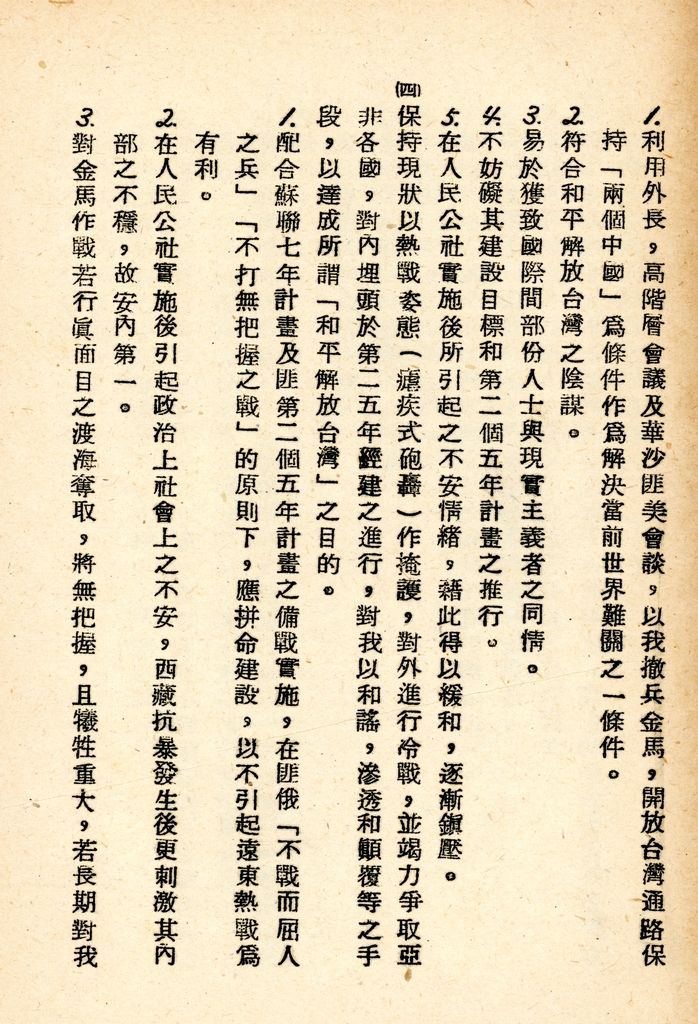 1.利用外長，高階層會議及華沙匪美會談，以我撤兵金馬，開放台灣通路保
持「兩個中國」爲條件作爲解決當前世界難關之一條件。
2.符合和平解放台灣之陰謀。
3.易於獲致國際間部份人士與現實主義者之同情。
4.不妨礙其建設目標和第二個五年計畫之推行。
5.在人民公社實施後所引起之不安情緒，藉此得以緩和，逐漸鎭壓。
㈣保持現狀以熱戰姿態（瘧疾式砲轟）作掩護，對外進行冷戰，並竭力爭取亞
非各國，對內埋頭於第二五年經建之進行，對我以和謠，滲透和顚覆等之手
段，以達成所謂「和平解放台灣」之目的。
1.配合蘇聯七年計畫及匪第二個五年計畫之備戰實施，在匪俄「不戰而屈人
之兵」「不打無把握之戰」的原則下，應拼命建設，以不引起遠東熱戰爲
有利。
2.在人民公社實施後引起政治上社會上之不安，西藏抗暴發生後更刺激其內
部之不穩，故安內第一。
3.對金馬作戰若行眞面目之渡海奪取，將無把握，且犧牲重大，若長期對我